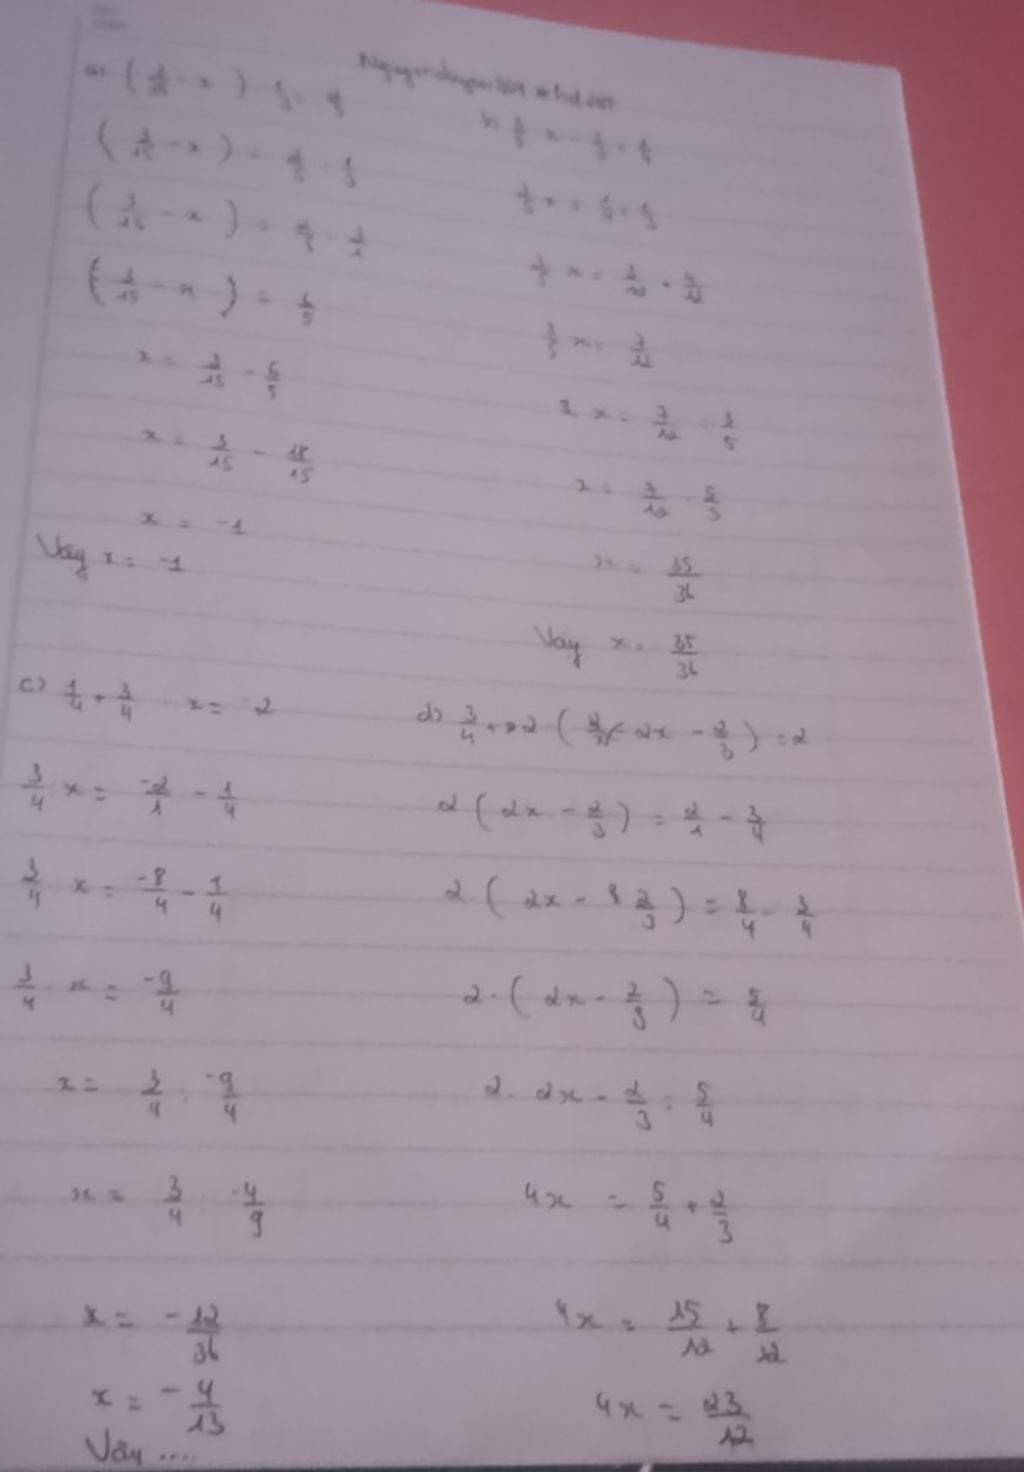 a) ( - x ) .
( 3/15 - x ) = 2/5 : 1/3
( 3/15 - x ) = 2/5 . 3/1
( 3/15 - x ) = 6/5
x = 3/15 - 6/5
x = 3/15 - 18/15
x = -1
Vậy x = -1
b) 3/5 x - 1/3 = 1/4
3/5 x = 1/4 + 1/3
3/5 x = 3/12 + 4/12
3/5 x = 7/12
x = 7/12 : 3/5
x = 7/12 . 5/3
x = 35/36
Vậy x = 35/36
c) 1/4 + 3/4 . x = -2
3/4 . x = -2/1 - 1/4
3/4 . x = -8/4 - 1/4
3/4 . x = -9/4
x = 3/4 : -9/4
x = 3/4 . -4/9
x = -12/36
x = -4/13
Vậy ....
d) 3/4 + 2 . ( 2x - 2/3 ) = 2
2 ( 2x - 2/3 ) = 2/1 - 3/4
2 . ( 2x - 2/3 ) = 8/4 - 3/4
2 . ( 2x - 2/3 ) = 5/4
2 . 2x - 2/3 = 5/4
4x = 5/4 + 2/3
4x = 15/12 + 8/12
4x = 23/12